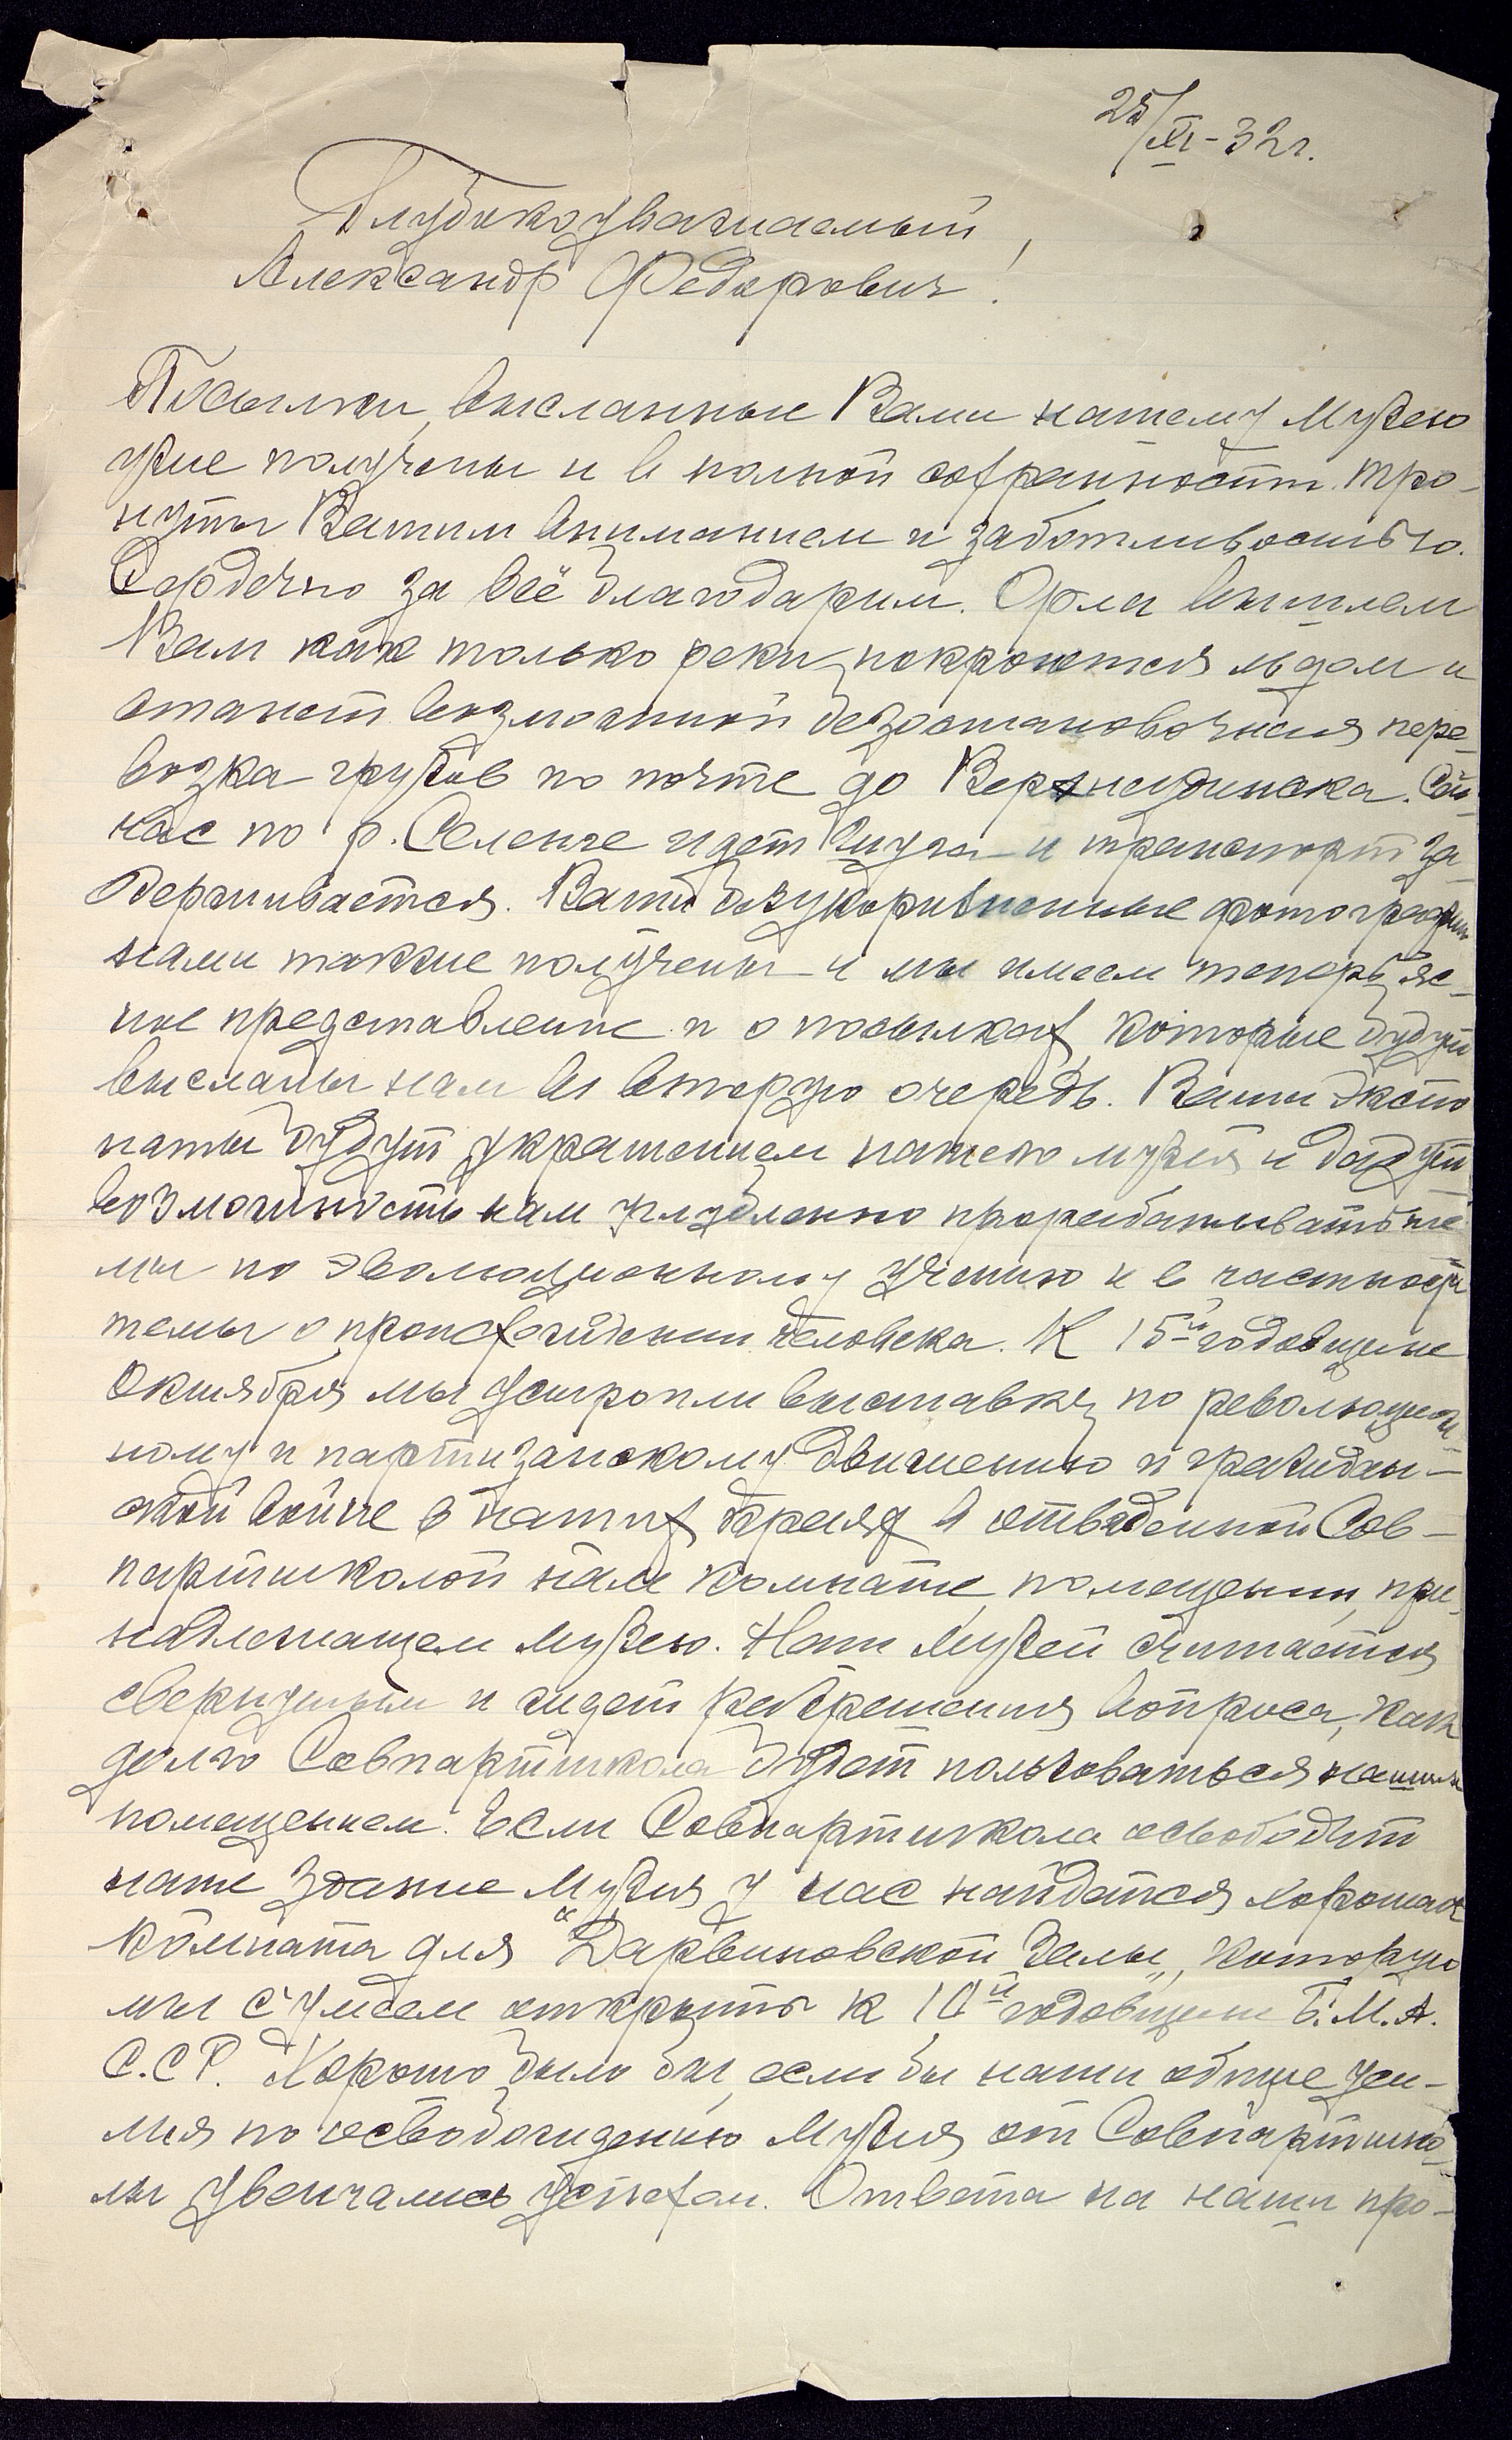 25/XI-32 г.
Глубокоуважаемый,
Александр Федорович!
Посылки, высланные Вами нашему музею
уже получены и в полной сохранности. Тро-
нуты Вашим вниманием и заботливостью.
Сердечно за всё благодарим. Орла вышлем
Вам как только реки покроются льдом и
станет возможной безостановочная пере-
возка грузов по почте до Верхнеудинска. Сей-
час по р. Селенге идет шуга и транспорт за-
держивается. Ваши безукоризненные фотографии
нами также получены и мы имеем теперь яс-
ное представление и о посылках, которые будут
высланы нам во вторую очередь. Ваши экспо
наты будут украшением нашего музея и дадут
возможность нам углубленно прорабатывать те
мы по эволюционному учению и в частности
темы о происхождении человека. К 15й годовщине
Октября мы устроили выставку по революцион-
ному и партизанскому движению и граждан-
ской войне в наших краях в отведенной Сов-
партшколой нам комнате, помещении, при-
надлежащем музею. Наш музей считается
свернутым и ждет разрешения вопроса, как
долго Совпартшкола будет пользоваться нашим
помещением. Если Совпартшкола освободит
наше здание музея у нас найдется хорошая
комната для "Дарвиновской залы", которую
мы сумеем открыть к 10й годовщине Б.М.А.
С.С.Р. Хорошо было бы, если бы наши общие уси-
лия по освобождению музея от Совпартшко-
лы увенчались успехом. Ответа на наши про-